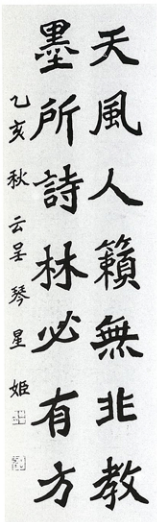 天風人籟無非教
墨所詩林必有方
乙亥秋云呈琴星姬